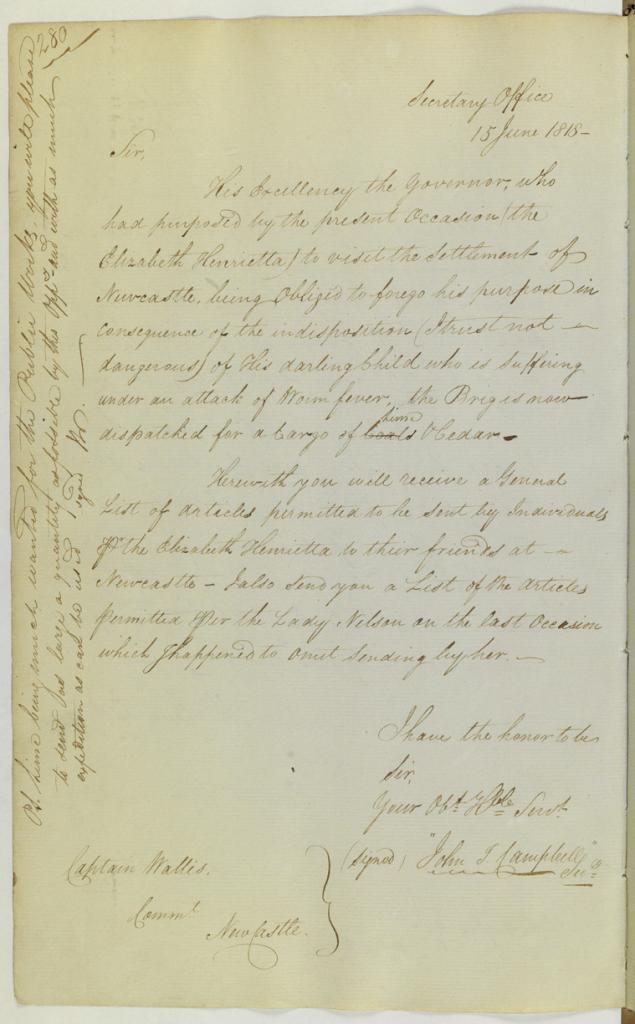 280
Secretary Office
15 June 1818 -
Sir,
His Excellency the Governor, who
had purposed by the present Occasion (the
Elizabeth Henrietta) to visit the Settlement of
Newcastle, being Obliged to forego his purpose in
consequence of the indisposition (I trust not -
dangerous) of His darling Child who is suffering
under an attack of Worm fever, the Brig is now
lime
dispatched for a Cargo of Coals & Cedar -
Herewith you will receive a General
List of articles permitted to be sent by Individuals
Pr the Elizabeth Henrietta to their friends at -
Newcastle - I also send you a List of the Articles
permitted Per the Lady Nelson on the last Occasion
which I happened to Omit sending by her. -
I have the honor to be
Sir,
Your Obt Hble Servt
(signed) "John T. Campbell" Secy
Captain Wallis.
Commt
NewCastle.
PS. Lime being much wanted for the Public Works, you will please
to send as large a quantity as possible by this Oppy and with as much
expedition as can be used
signed